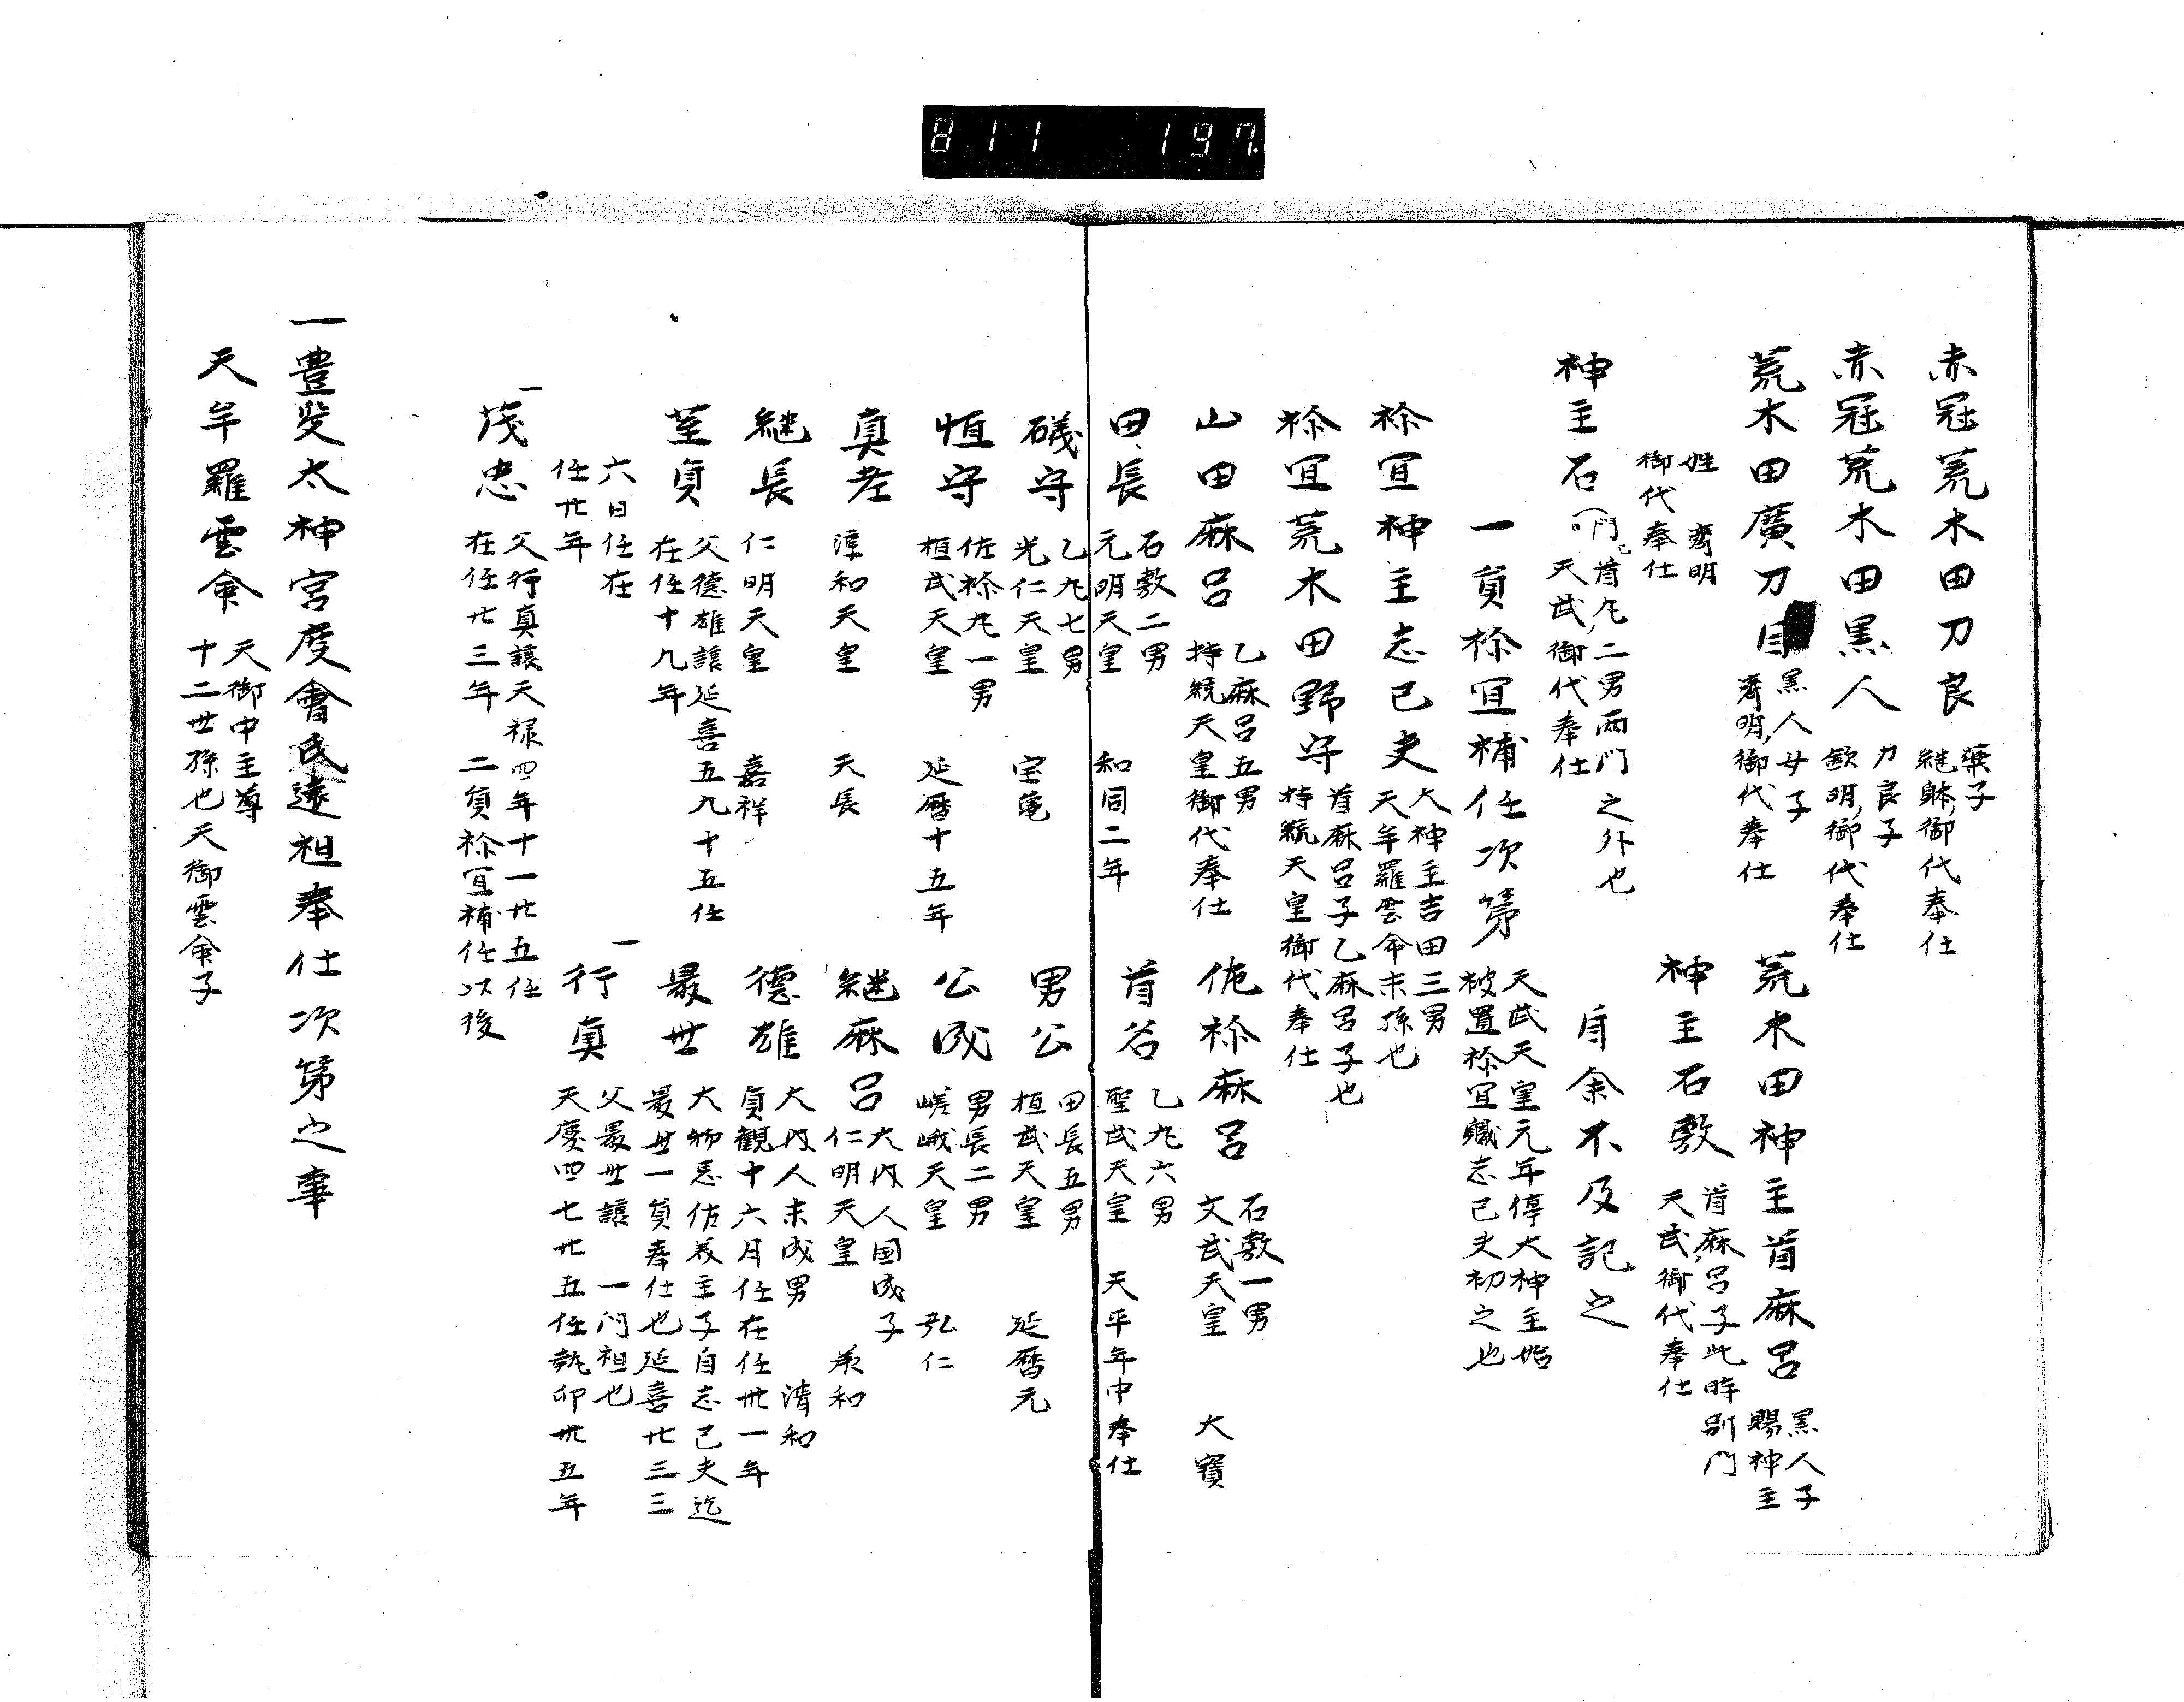 811 197
赤冠荒木田刀良 薬子
継躰御代奉仕
赤冠荒木田黒人 刀良子
欽明御代奉仕
荒木田廣刀自 黒人女子
齊明御代奉仕
荒木田神主首麻呂 黒人子
賜神主
姓 齊明
御代奉仕
神主石敷 首麻呂子此時別門
天武御代奉仕
神主石门 首丸二男両門之外也
天武御代奉仕
自余不及記之
一員祢宜補任次第 天武天皇元年停大神主始
被置祢宜職志已夫初之也
祢宜神主志已夫 大神主吉田三男
天牟羅雲命末孫也
祢宜荒木田野守 首麻呂子乙麻呂子也
持統天皇御代奉仕
山田麻呂 乙麻呂五男
持統天皇御代奉仕
佗祢麻呂 石敷一男
文武天皇 大寶
田長 石敷二男
元明天皇 和同二年
首谷 乙丸六男
聖武天皇 天平年中奉仕
礒守 乙丸七男
光仁天皇 宝亀
男公 田長五男
桓武天皇 延暦元
恒守 佐祢丸一男
桓武天皇 延暦十五年
公成 男長二男
嵯峨天皇 弘仁
真老 淳和天皇 天長
継麻呂 大内人国成子
仁明天皇 承和
継長 仁明天皇 嘉祥
徳雄 大内人末成男 清和
貞観十六月任在任卅一年
茎貞 父徳雄譲延喜五九十五任
在任十九年
最世 大物忌佐美主子自志已夫迄
最世一員奉仕也延喜廿三三
六日任在
任廿年
一行真 父最世譲 一門祖也
天慶四七廿五任執印卅五年
一茂忠 父行真譲天禄四年十一廿五任
在任廿三年 二員祢宜補任以後
一豊受太神宮度會氏遠祖奉仕次第之事
天牟羅雲命 天御中主尊
十二世孫也天御雲命子